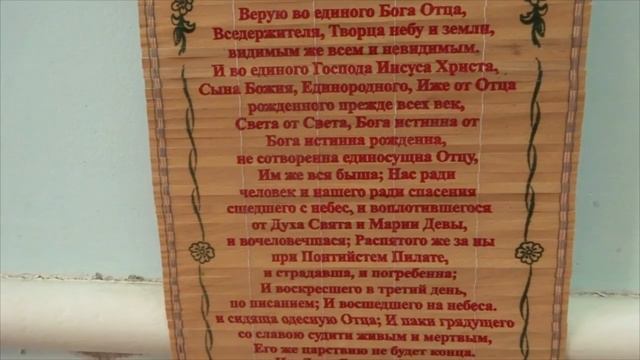 Верую во единого Бога Отца,
Вседержителя, Творца небу и земли,
видимым же всем и невидимым.
И во единого Господа Иисуса Христа,
Сына Божия, Единородного, Иже от Отца
рожденного прежде всех век,
Света от Света, Бога истинна от
Бога истинна рожденна,
не сотворенна единосущна Отцу,
Им же вся быша; Нас ради
человек и нашего ради спасения
сшедшего с небес, и воплотившегося
от Духа Свята и Марии Девы,
и вочеловечшася; Распятого же за ны
при Понтийстем Пилате,
и страдавша, и погребенна;
И воскресшего в третий день,
по писанием; И восшедшего на небеса.
и сидяща одесную Отца; И паки грядущего
со славою судити живым и мертвым,
Его же царствию не будет конца.